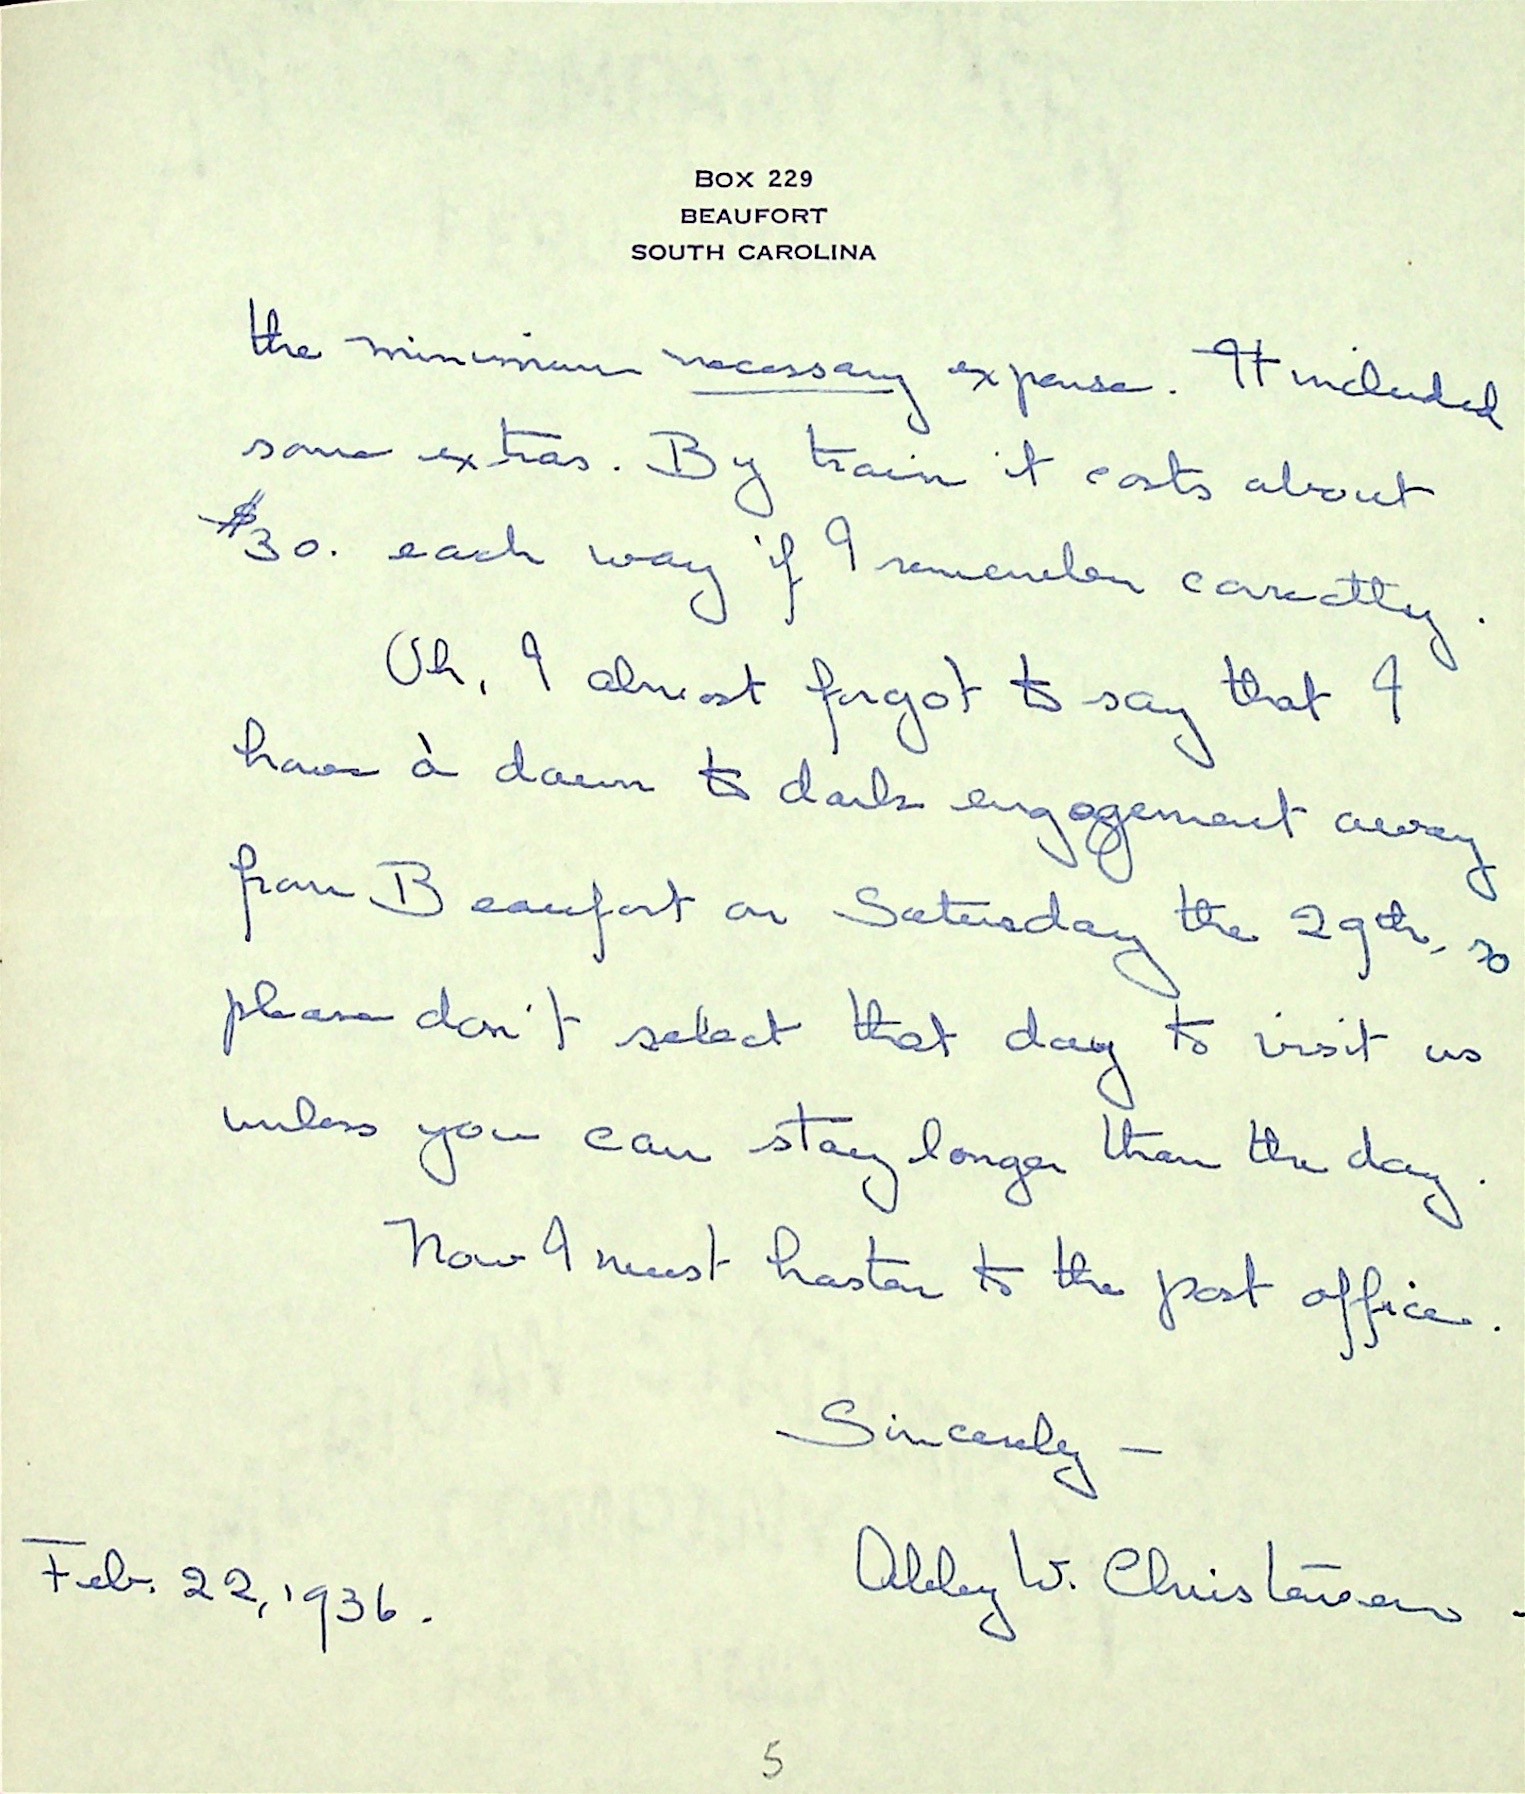 BOX 229
BEAUFORT
SOUTH CAROLINA
the minimum necessary expense. It included
some extras. By train it costs about
$30. each way if I remember correctly.
Oh, I almost forgot to say that I
have a dawn to dark engagement away
from Beaufort on Saturday the 29th, so
please don't select that day to visit us
unless you can stay longer than the day.
Now I must hasten to the post office.
Sincerely —
Abby W. Christensen.
Feb. 22, 1936.
5